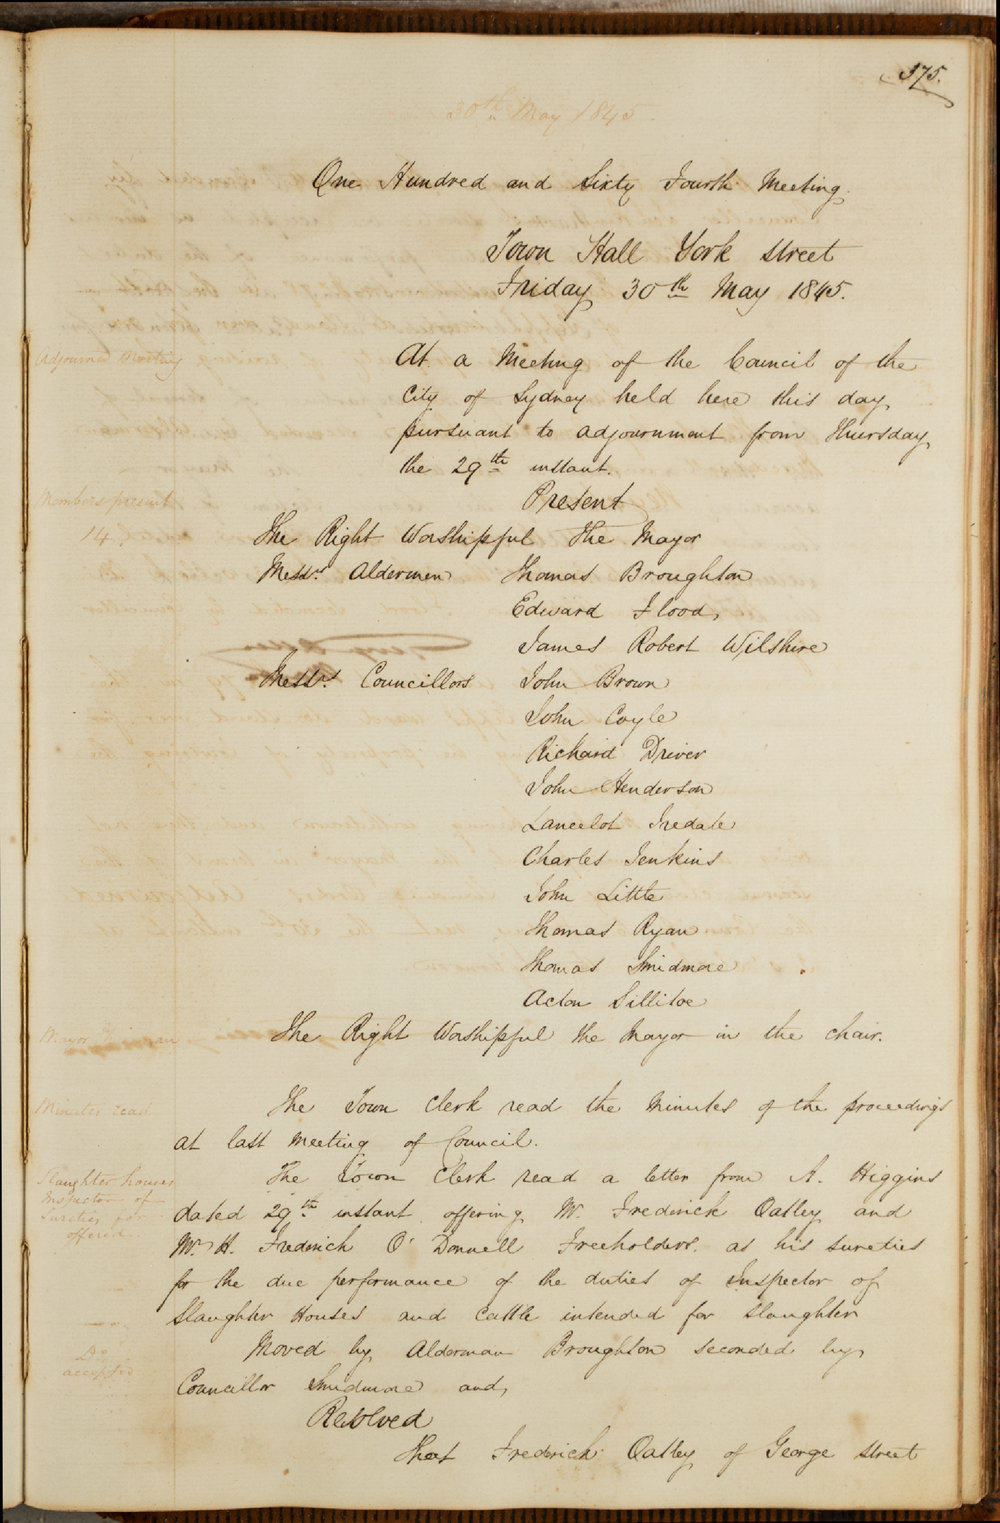 375.
30th May 1845.
One Hundred and Sixty Fourth Meeting.
Town Hall York Street
Friday 30th May 1845.
Adjourned Meeting
At a Meeting of the Council of the
City of Sydney held here this day,
pursuant to adjournment from Thursday
the 29th instant.
Members present
14.
Present
The Right Worshipful The Mayor
Messrs Aldermen Thomas Broughton
Edward Flood,
James Robert Wilshire
Messrs Councillors John Brown
John Coyle
Richard Driver
John Henderson
Lancelot Iredale
Charles Jenkins
John Little
Thomas Ryan
Thomas Smidmore
Acton Sillitoe
Mayor
The Right Worshipful the Mayor in the chair.
Minutes read
The Town Clerk read the Minutes of the proceedings
at last Meeting of Council.
Slaughter houses
Inspector of
Sureties for
offered.
The Town Clerk read a letter from A. Higgins
dated 29th instant offering Mr. Frederick Oatley and
Mr. H. Fredrick O'Donnell Freeholders. as his sureties
for the due performance of the duties of Inspector of
Slaughter Houses and Cattle intended for slaughter
Do
accepted
Moved by Alderman Broughton seconded by
Councillor Smidmore and,
Resolved
That Frederick Oatley of George Street